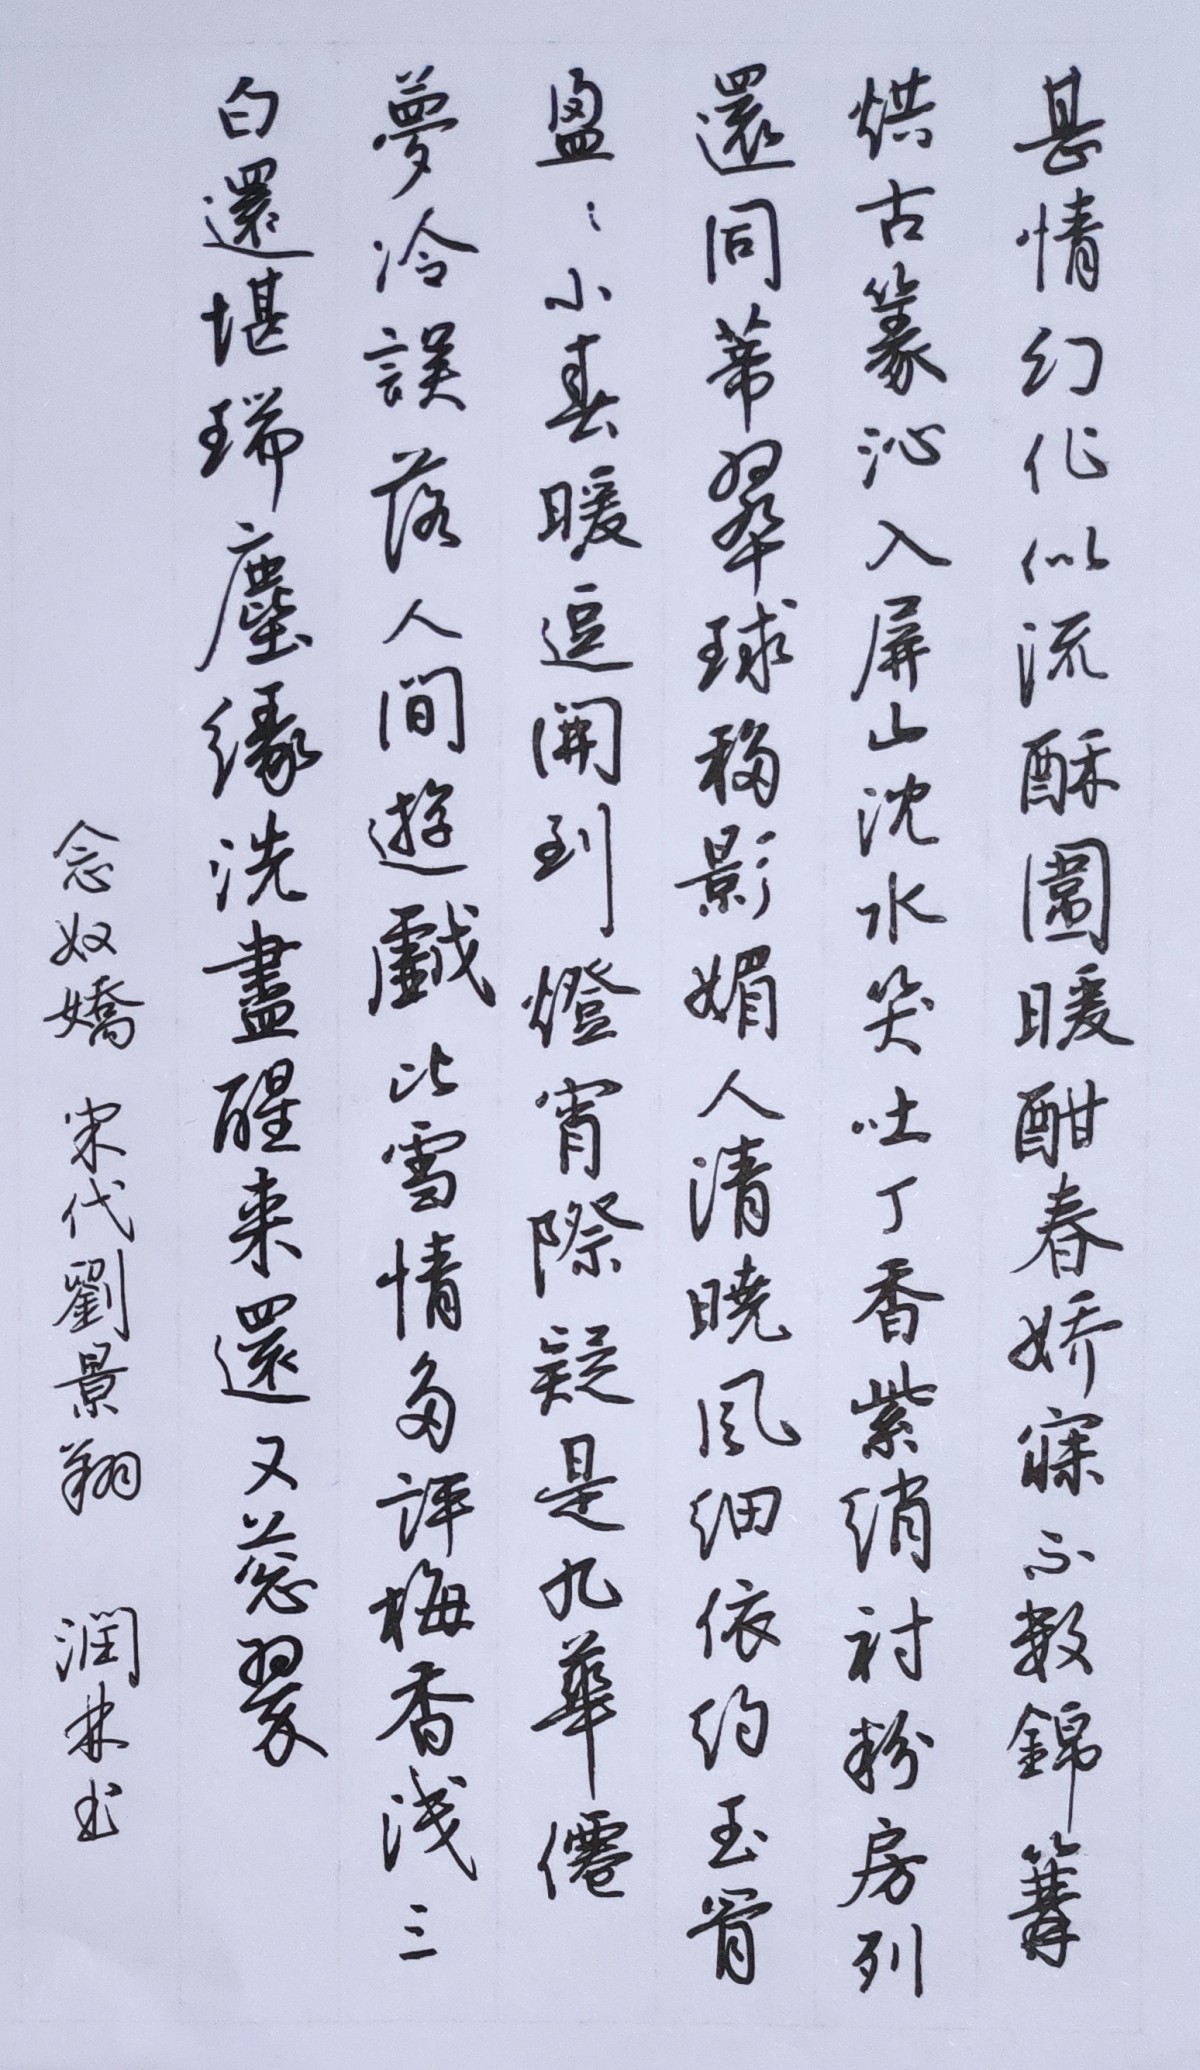 甚情幻化似流酥圍暖酣春娇寐不数錦篝
烘古篆沁入屏山沈水笑吐丁香紫绡衬粉房列
還同蒂翠球移影媚人清曉風细依约玉骨
盈〻小春暖逗開到燈宵際疑是九華僊
夢冷誤落人間遊戲比雪情多評梅香浅三
白還堪瑞塵缘洗盡醒来還又葱翠
念奴嬌 宋代劉景翔 潤林书